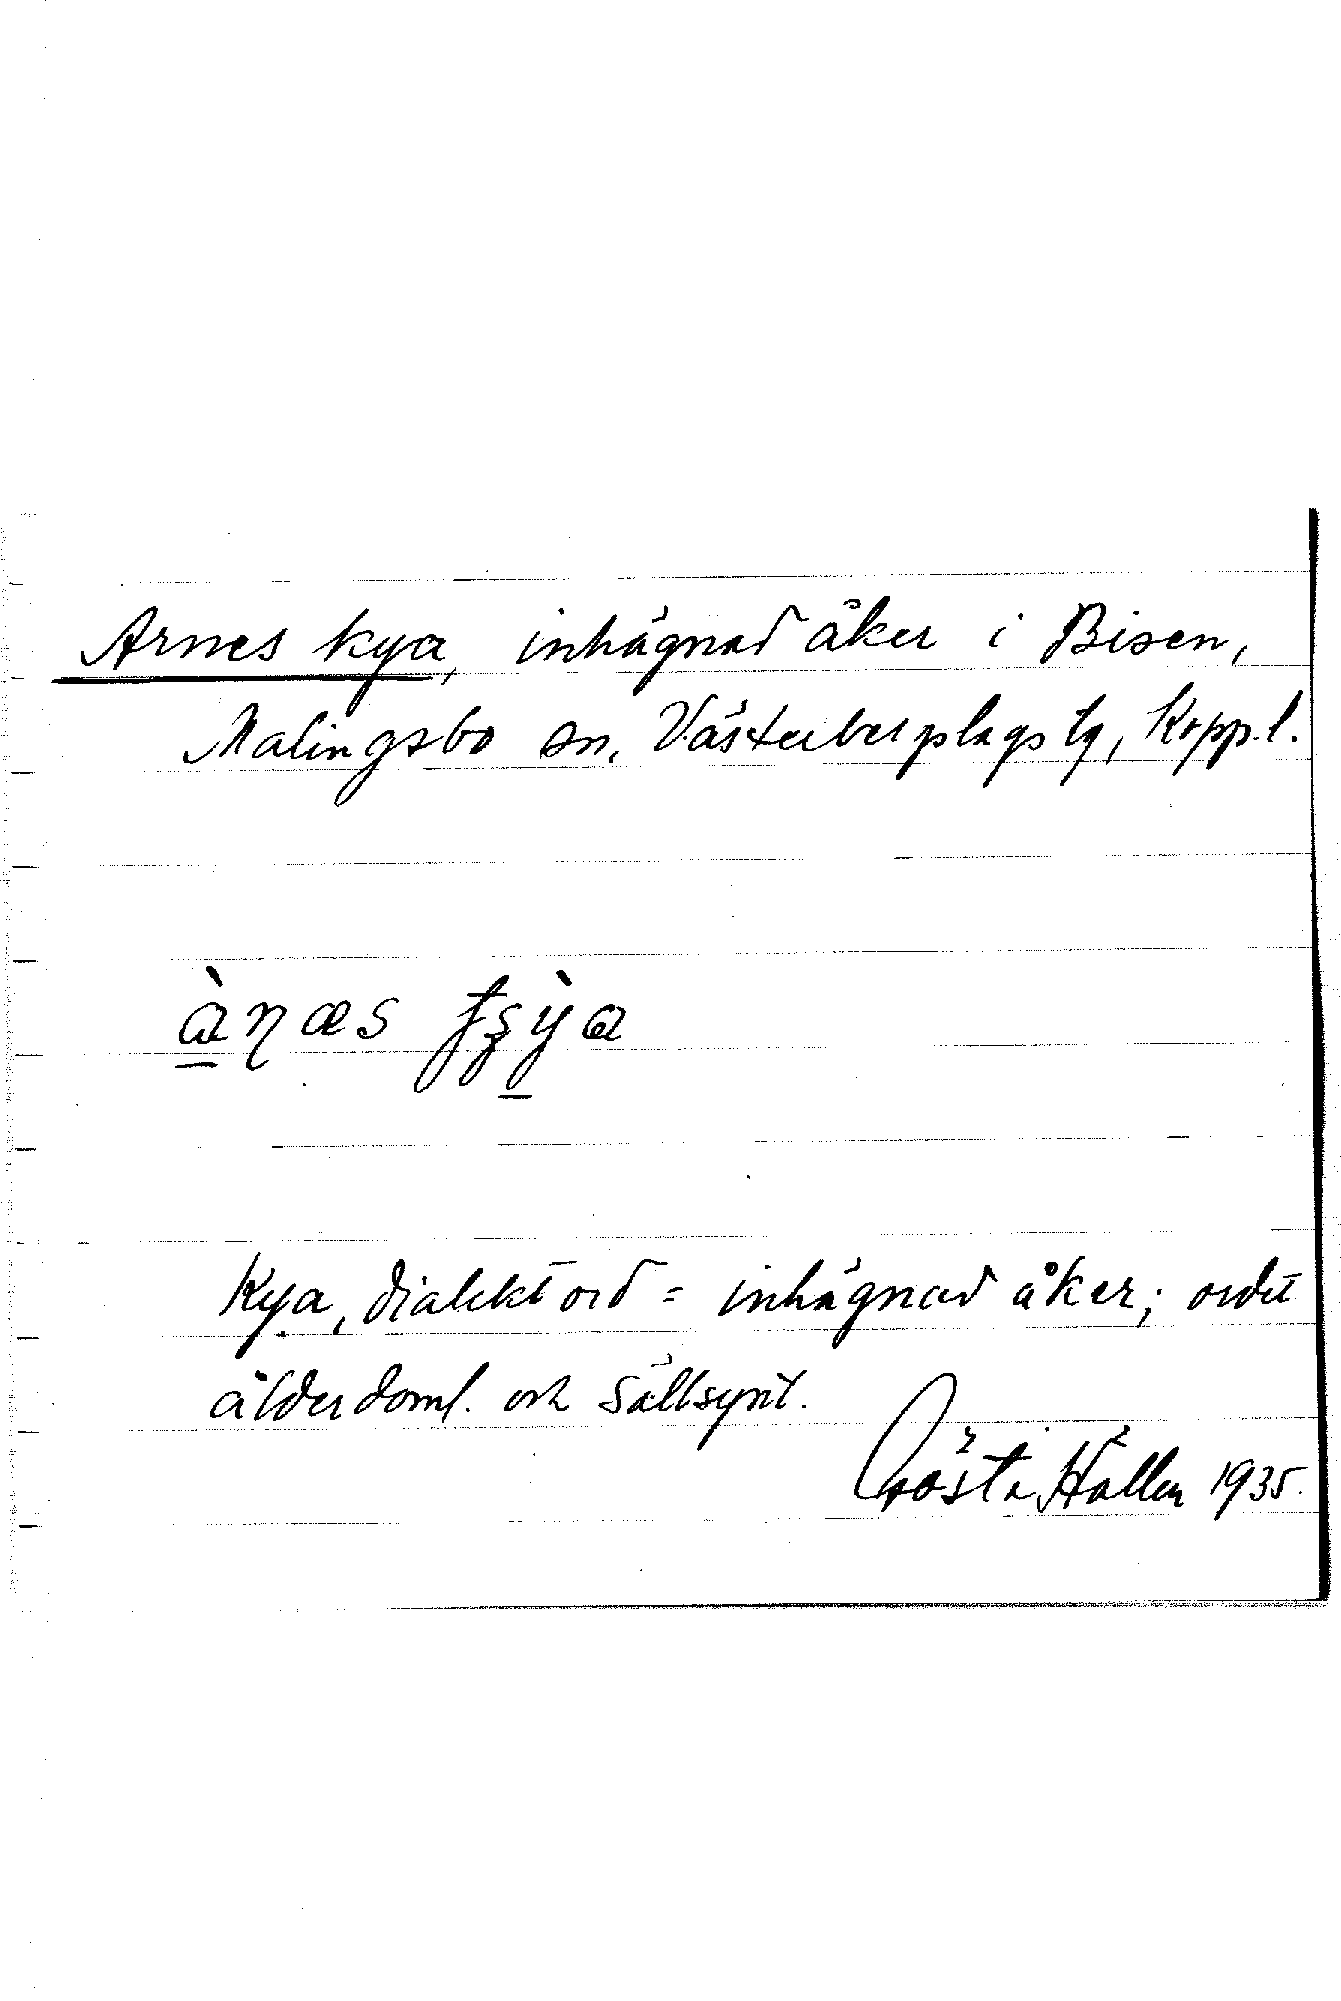 Arnes kya, inhägnad åker i Bisen,
Malingsbo sn, Västerbergslags tg, Kopp.l.
kya, dialektord = inhägnad åker; ordet
ålderdoml. och sällsynt.
Gösta Hållen 1935.